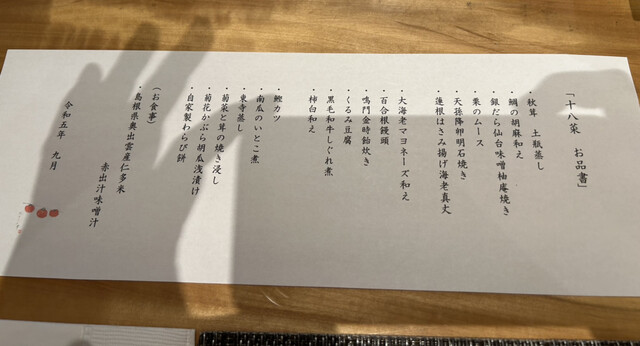 「十八菜　お品書」
・秋茸　土瓶蒸し
・鯛の胡麻和え
・銀だら仙台味噌柚庵焼き
・栗のムース
・天孫降卵明石焼き
・蓮根はさみ揚げ海老真丈
・大海老マヨネーズ和え
・百合根饅頭
・鳴門金時飴炊き
・くるみ豆腐
・黒毛和牛しぐれ煮
・柿白和え
・鰹カツ
・南瓜のいとこ煮
・東寺蒸し
・菊菜と茸の焼き浸し
・菊花かぶら胡瓜浅漬け
・自家製わらび餅
（お食事）
・島根県奥出雲産仁多米
赤出汁味噌汁
令和五年　九月